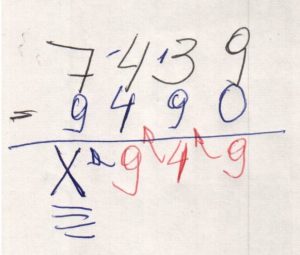 7439
= 9490
X 949